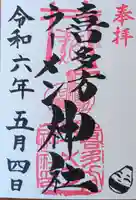 奉拝
喜多方
ラーメン神社
令和六年五月四日